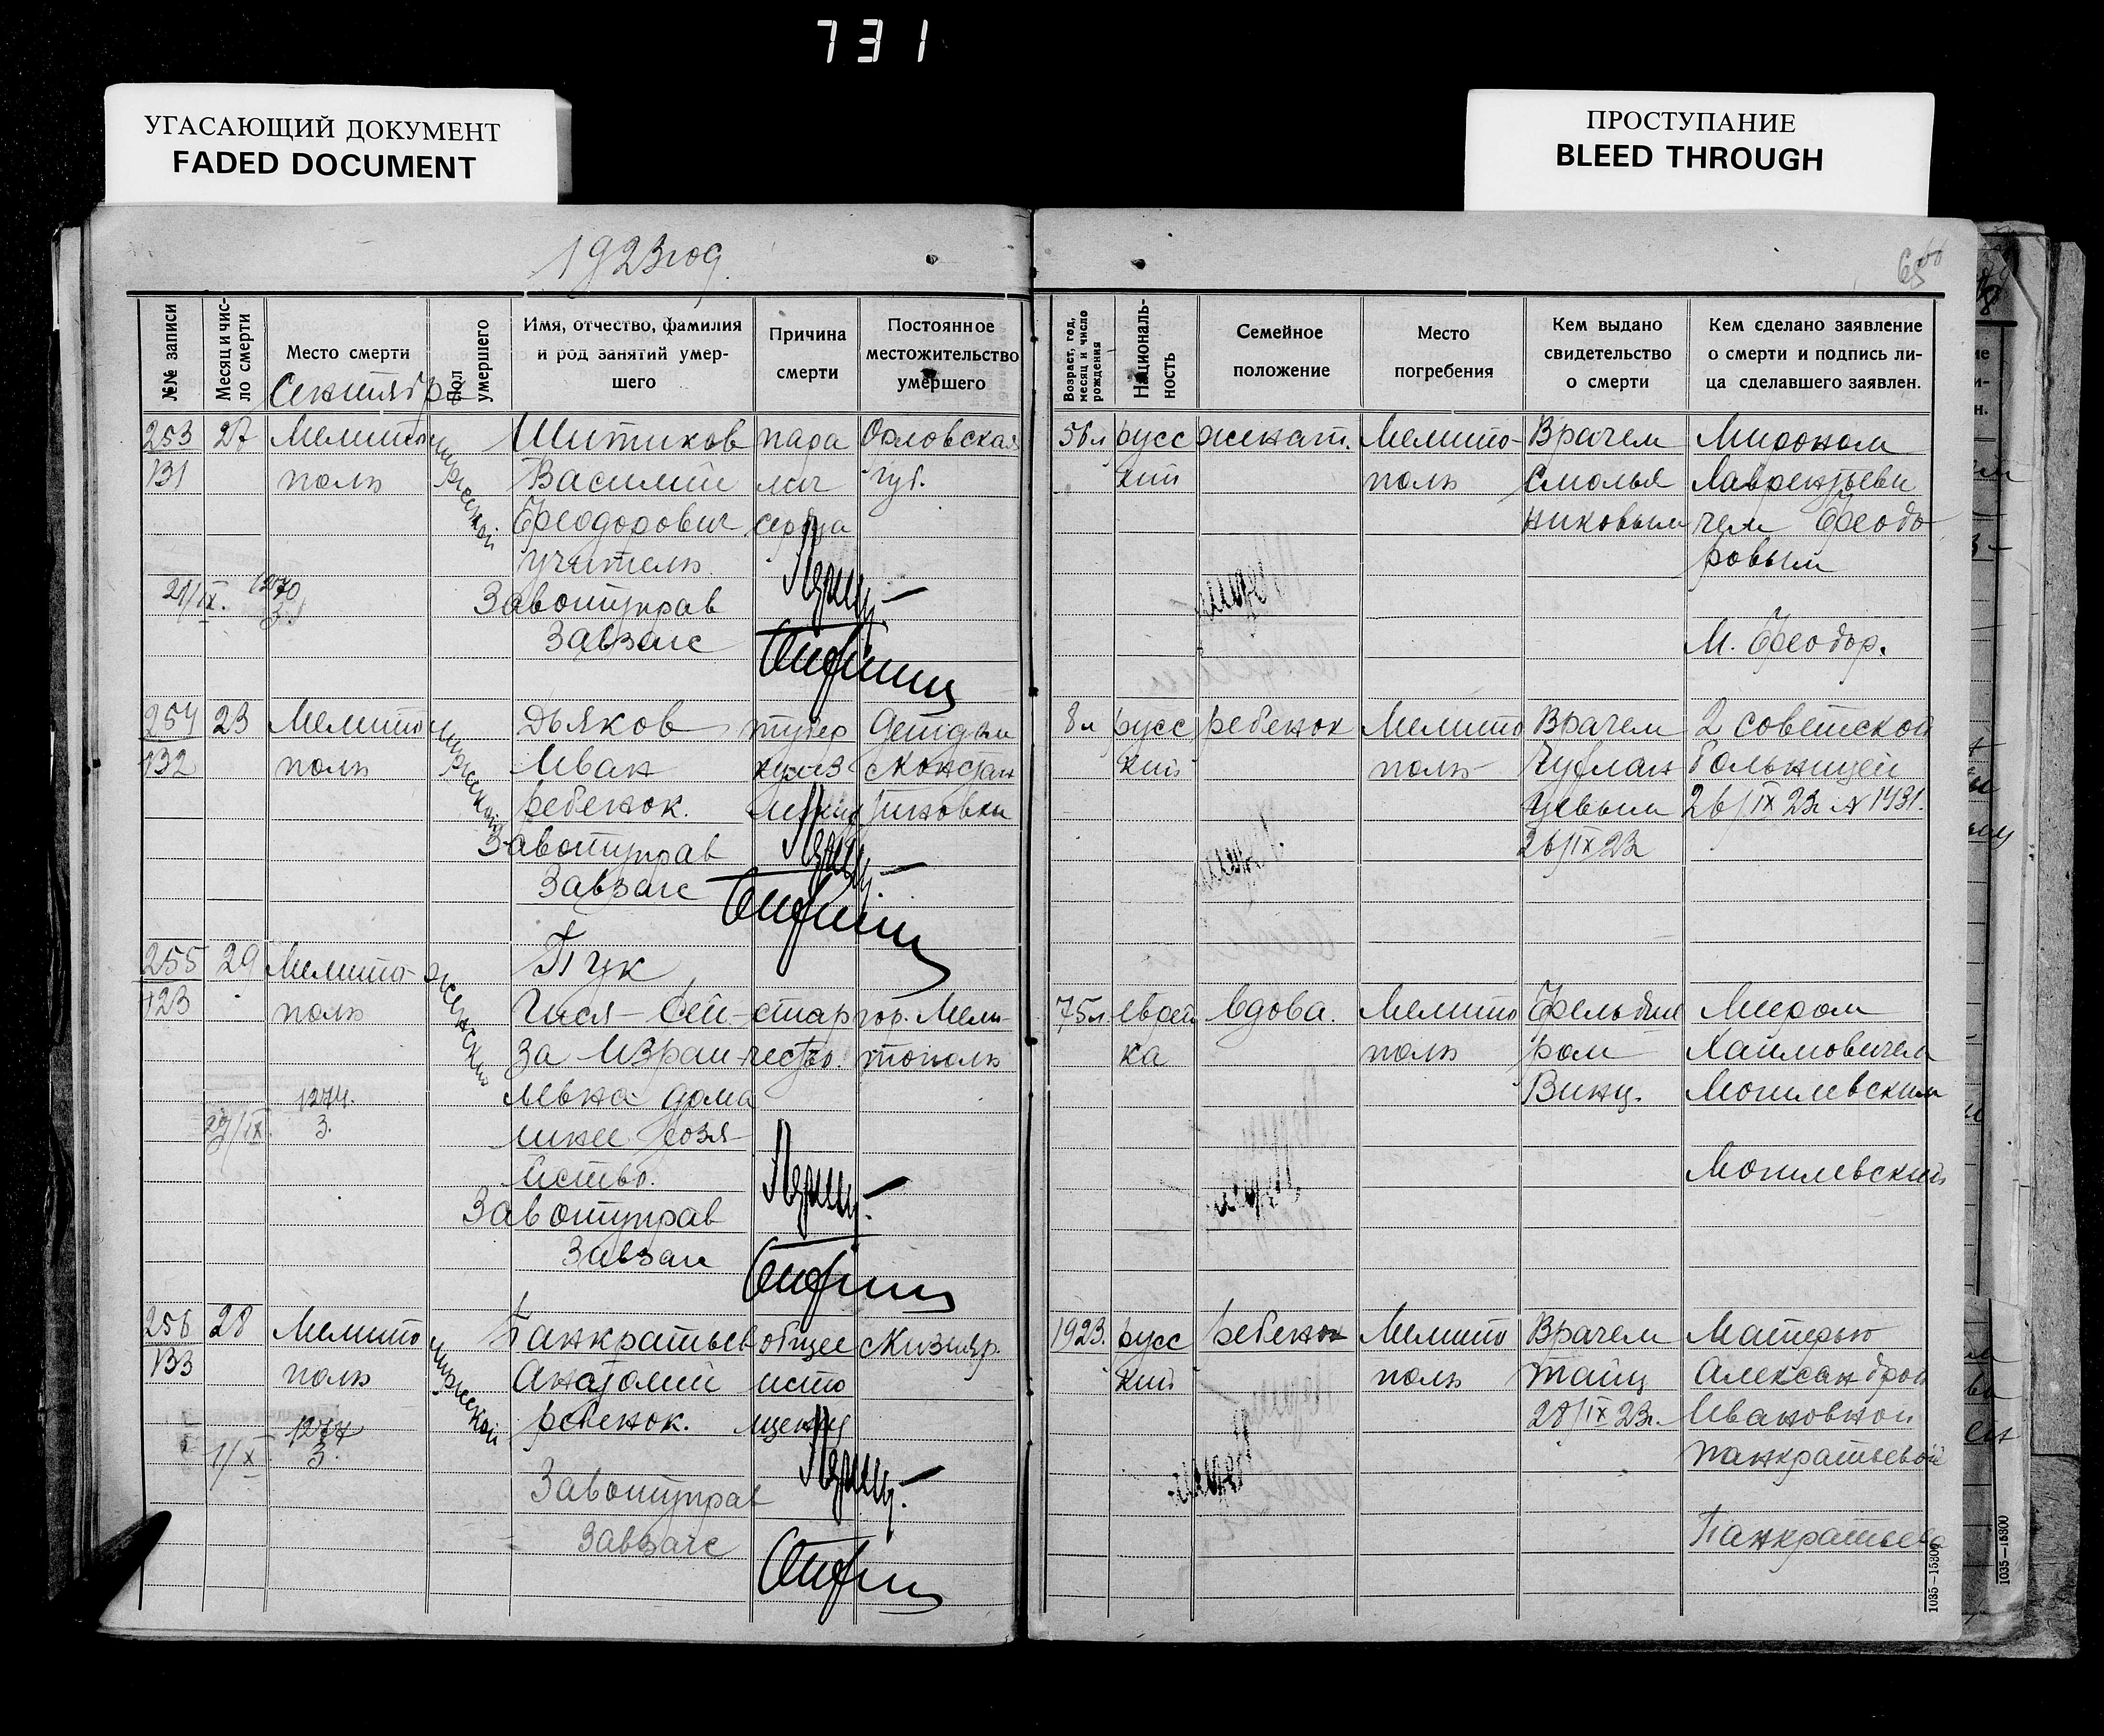 731
УГАСАЮЩИЙ ДОКУМЕНТ
FADED DOCUMENT
ПРОСТУПАНИЕ
BLEED THROUGH
1923 год.
65
№№ записи
Месяц и чис-
ло смерти
Место смерти
Сентябрь
Пол
умершего
Имя, отчество, фамилия
и род занятий умер-
шего
Причина
смерти
Постоянное
местожительство
умершего
Возраст, год,
месяц и число
рождения
Националь-
ность
Семейное
положение
Место
погребения
Кем выдано
свидетельство
о смерти
Кем сделано заявление
о смерти и подпись ли-
ца сделавшего заявлен.
253
131
27
Мелито
поль
мужеской
Шитиков
Василий
Феодорович
учитель
пара
лич
сердца
Орловская
губ.
56 л
русс
кий
женат.
Мелито-
поль
Врачем
Смолья
никовым
Мироном
Лаврентьеви
чем Феодо
ровым
М. Феодор.
1270
3.
Завотуправ
Завзагс
254
132
23
Мелито
поль
мужеской
Дьяков
Иван
ребенок.
тубер
кулез
Детдом
с Констан
тиновки
8 л
русс
кий
ребенок
Мелито
поль
Врачем
26/IX 23г
2 советской
больницей
26/IX 23г № 1931.
Завотуправ
Завзагс
255
123
29
Мелито-
поль
женской
Пук
Гися-Бей-
за Израи-
левна дома
шнее хозя-
йство.
стар
чество.
гор. Мели-
тополь
75 л.
еврей
ка
вдова.
Мелито
поль
Фельдше
ром
Винц.
Меером
Хаимовичем
Могилевским
Могилевский
1274.
29/IX.
3.
Завотуправ
Завзагс
256
133
28
Мелито
поль
мужеской
Панкратьев
Анатолий
ребенок.
общее
исто
щение
с Кизияр.
1923.
русс
кий
ребенок
Мелито
поль
Врачем
Тайц
28/IX 23г.
Матерью
Александрой
Ивановной
Панкратьевой
Панкратьева
1277
1/X.
3.
Завотуправ
Завзагс
1035—15300
1035—15300